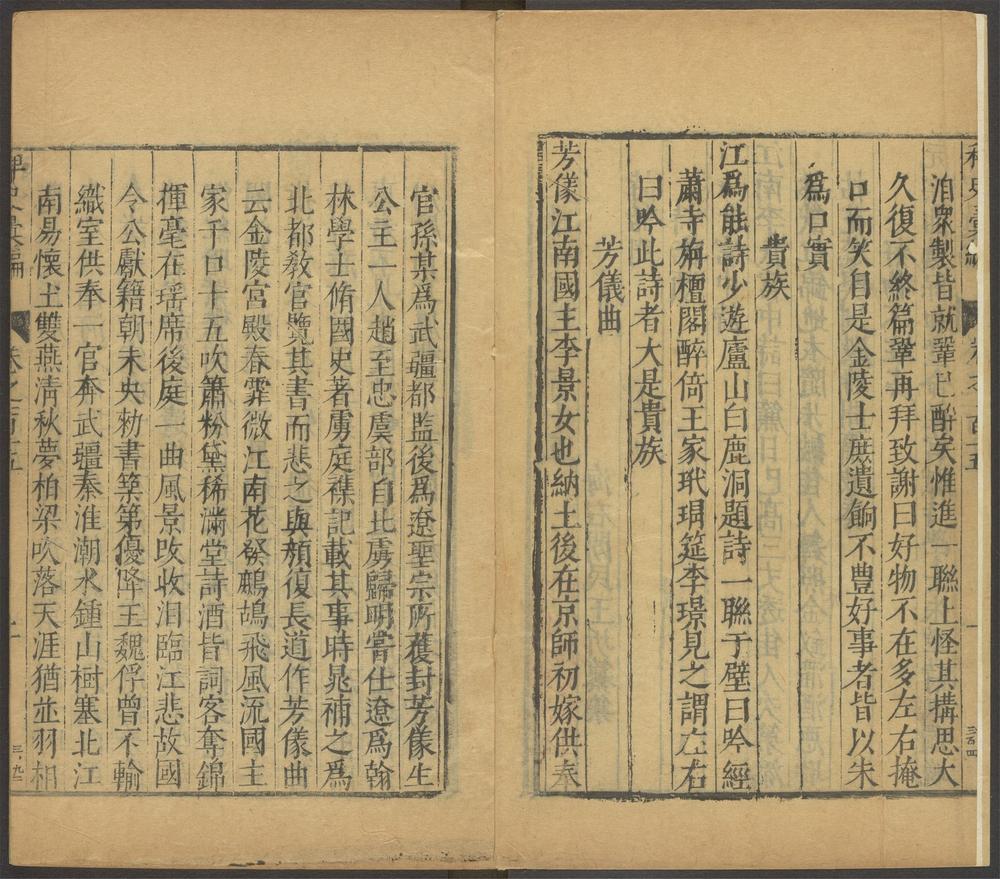 稗史彙編 卷之一百十五 一 三百四
洎衆製皆就鞏已醉矣惟進一聯上怪其搆思大
久復不終篇鞏再拜致謝曰好物不在多左右掩
口而笑自是金陵士庶遺餉不豊好事者皆以朱
爲口實
貴族
江爲能詩少遊廬山白鹿洞題詩一聯于壁曰吟經
蕭寺旃檀閣醉倚王家玳瑁筵李璟見之謂左右
曰吟此詩者大是貴族
芳儀曲
芳儀江南國主李景女也納土後在京師初嫁供奉
官孫某爲武疆都監後爲遼聖宗所獲封芳儀生
公主一人趙至忠虞部自北虜歸明嘗仕遼爲翰
林學士脩國史著虜庭襍記載其事時晁補之爲
北都教官覽其書而悲之與顏復長道作芳儀曲
云金陵宮殿春霏微江南花發鷓鴣飛風流國主
家千口十五吹簫粉黛稀滿堂詩酒皆詞客奪錦
揮毫在瑶席後庭一曲風景改收泪臨江悲故國
令公獻籍朝未央勑書築第優降王魏俘曾不輸
織室供奉一官奔武疆秦淮潮水鍾山樹塞北江
南易懷土雙燕清秋夢柏梁吹落天涯猶並羽相
稗史彙編 卷之百十五 一 三·九二